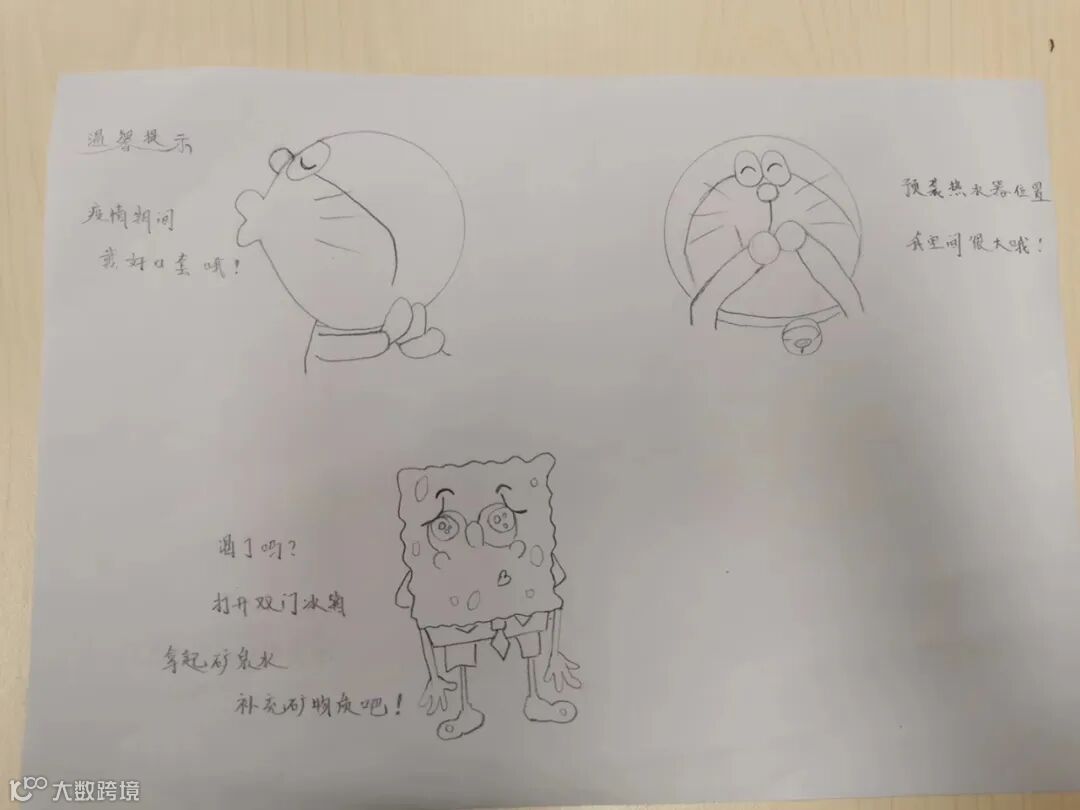 温馨提示
疫情期间
戴好口套哦!
预装热水器位置
我空间很大哦!
渴了吗?
打开双门冰箱
拿起矿泉水
补充矿物质吧!
大数跨境